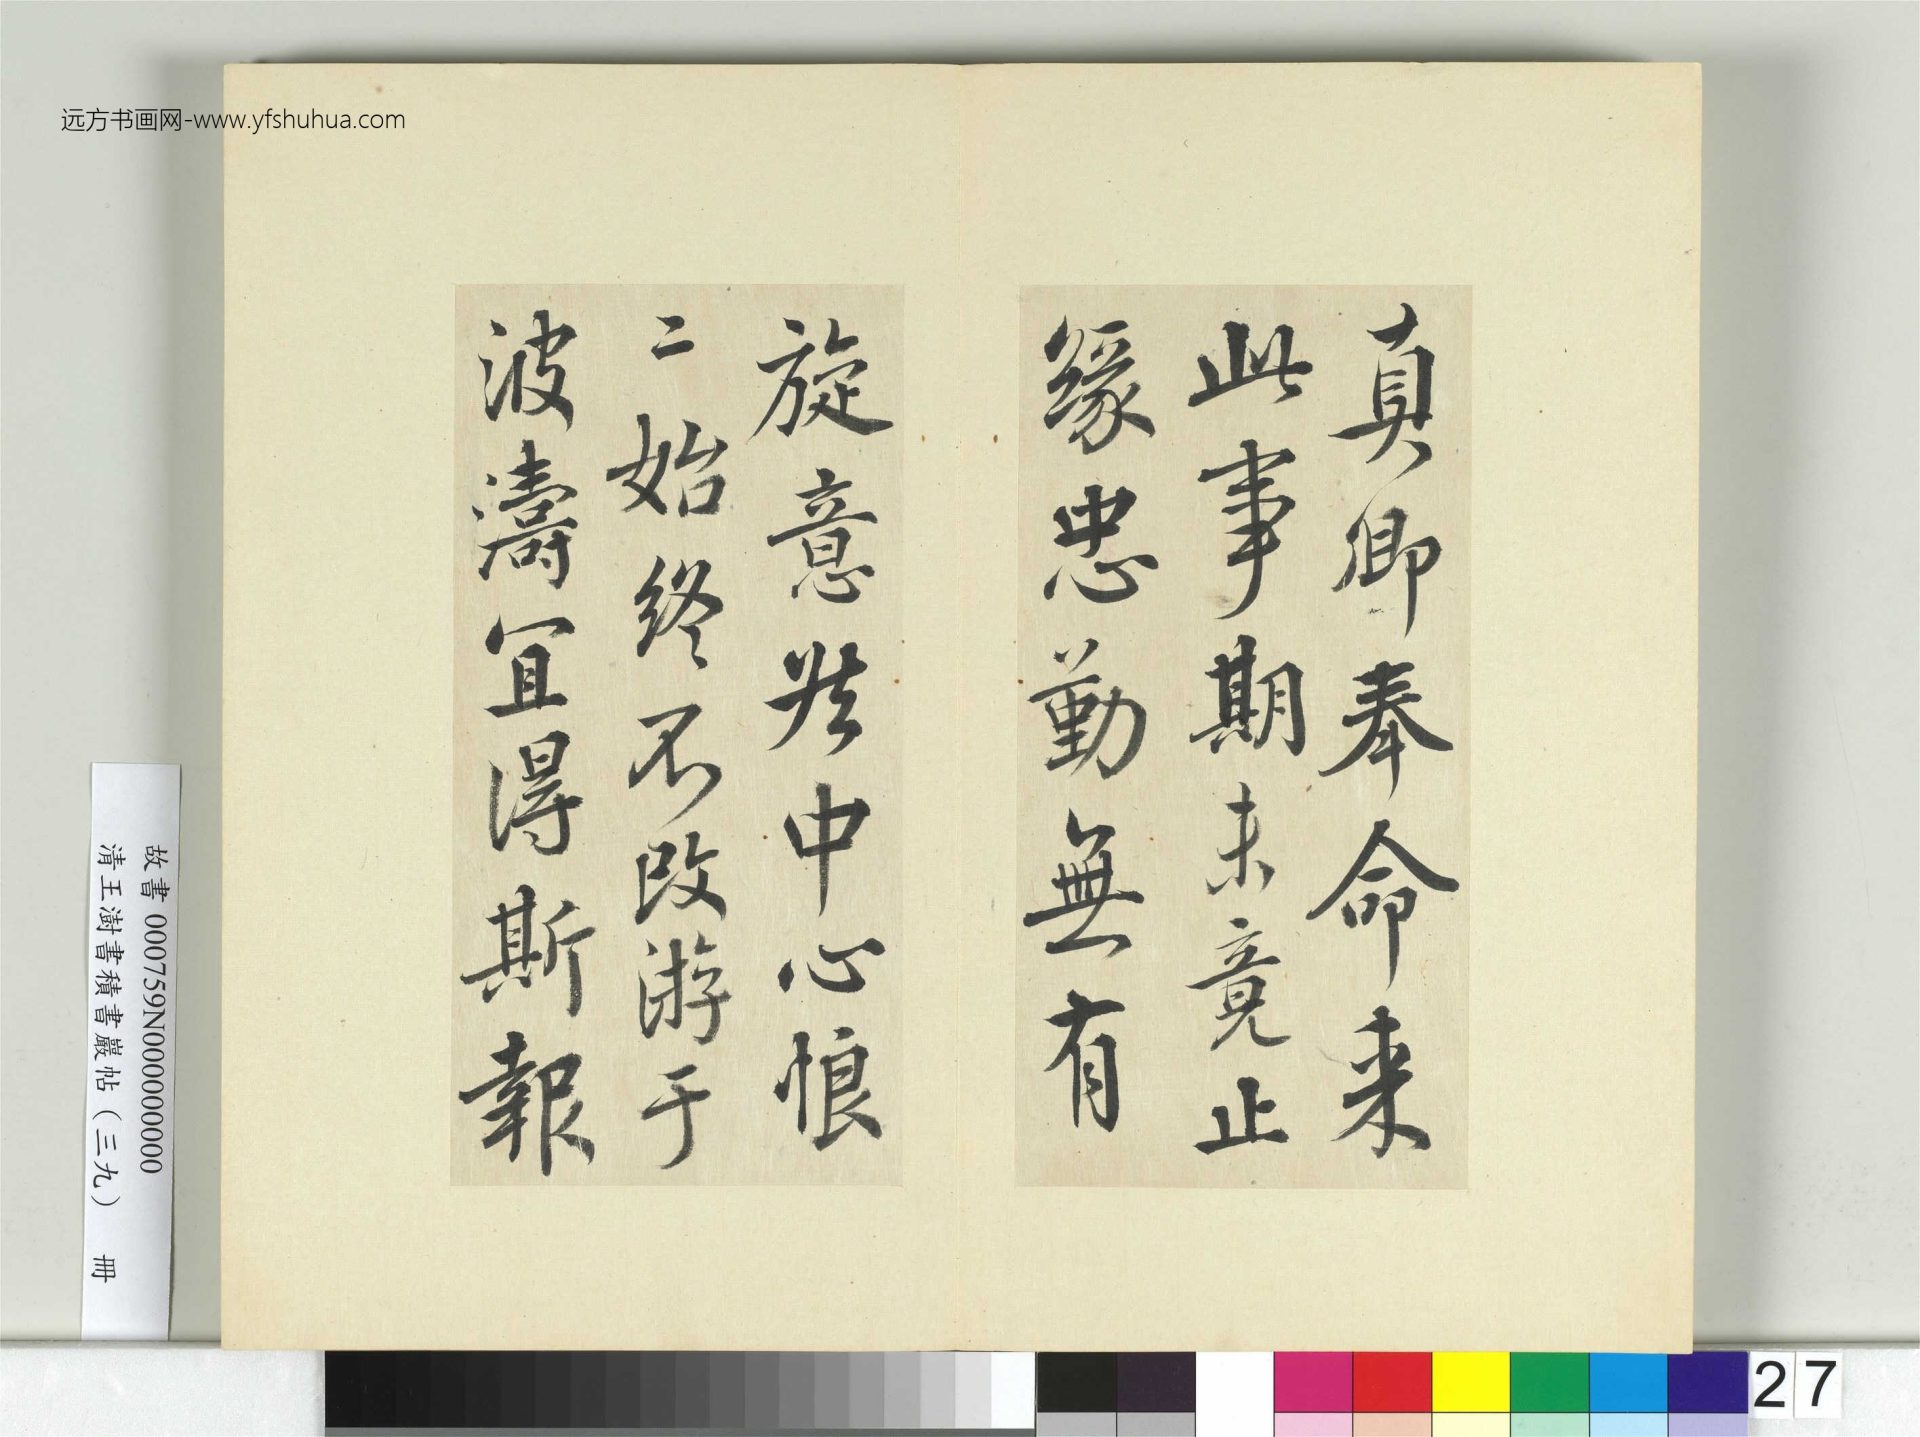 远方书画网-www.yfshuhua.com
真卿奉命来
此事期未竟止
緣忠勤無有
旋意然中心恨
二始終不改游于
波濤宜得斯報
故書 000759N000000000
清王澍書積書巖帖（三九） 冊
27